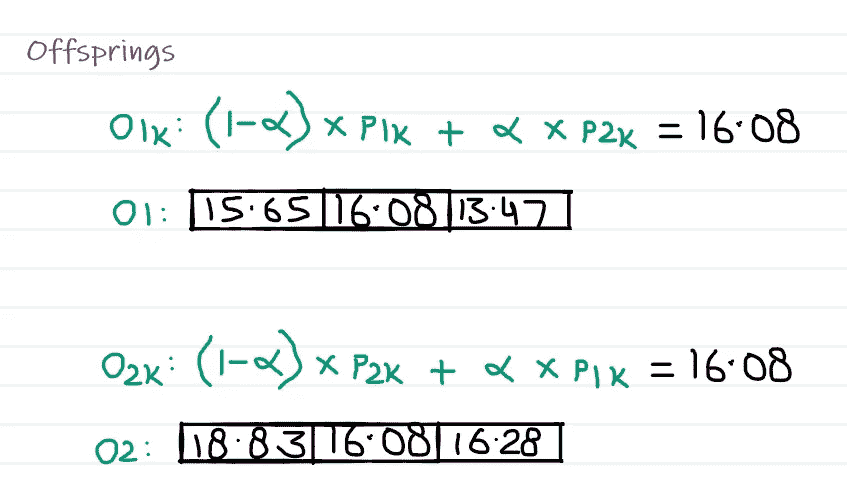 Offsprings
O1K: (1-α) × P1K + α × P2K = 16.08
O1: 15.65 16.08 13.47
O2K: (1-α) × P2K + α × P1K = 16.08
O2: 18.83 16.08 16.28